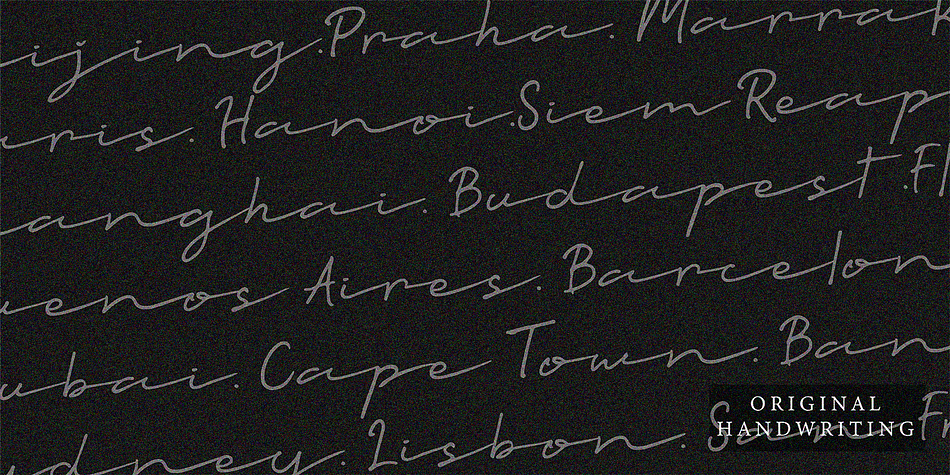 ijing. Praha. Marrak
aris. Hanoi. Siem Reap
anghai. Budapest. Fl
uenos Aires. Barcelon
ubai. Cape Town. Ban
ydney. Lisbon. San Fr
ORIGINAL
HANDWRITING